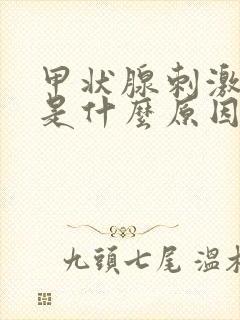 甲状腺刺激
是什麼原因
九頭七尾 溫木